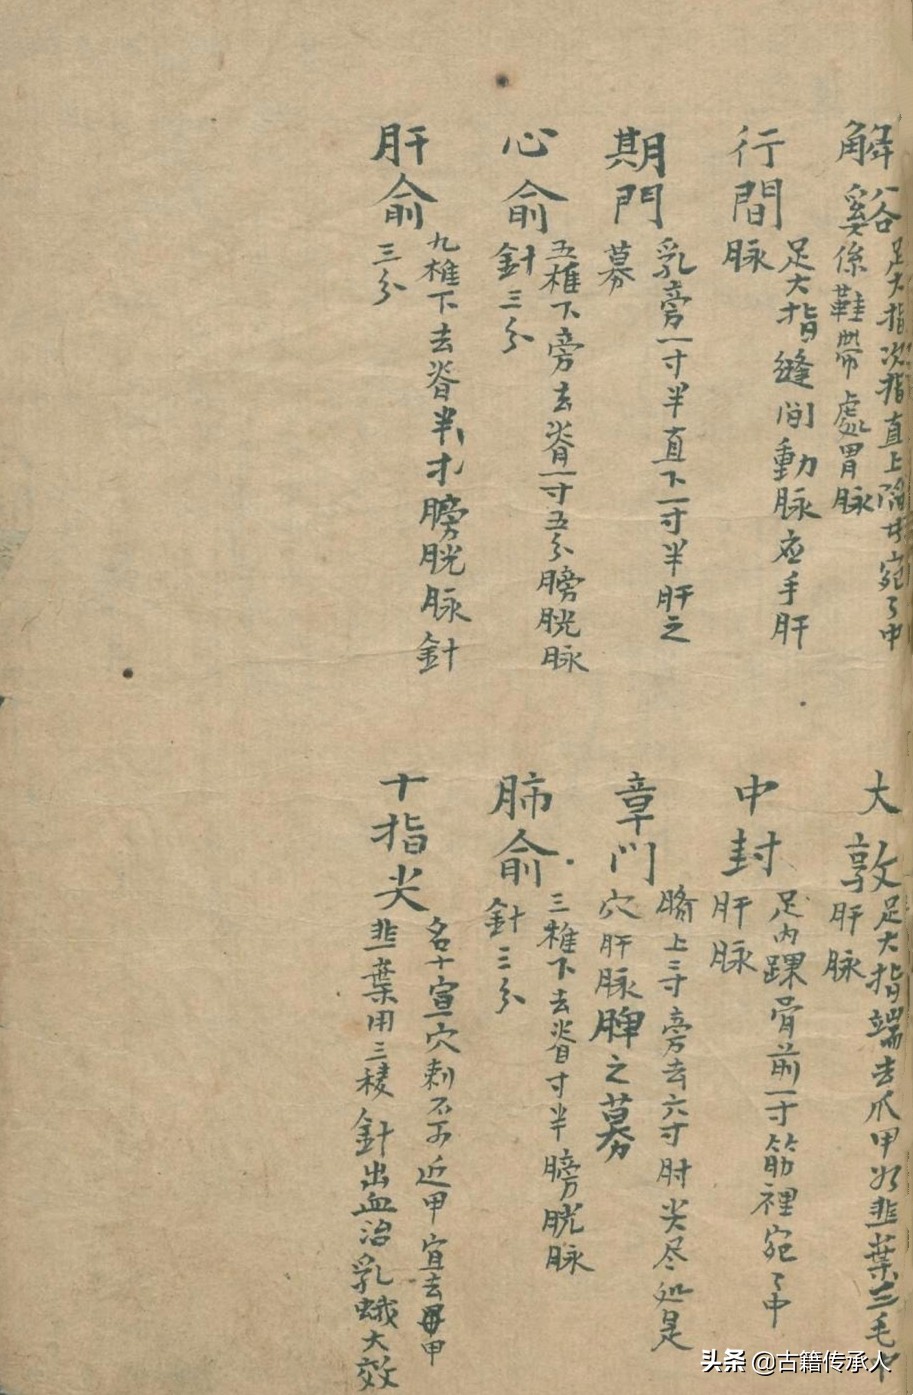 解谿
足大指次指直上陷宛〻中
係鞋帶處胃脉
大敦
足大指端去爪甲如韭葉三毛中
肝脉
行間
足大指縫间動脉应手肝
脉
中封
足内踝骨前一寸筋裡宛〻中
肝脉
期門
乳旁一寸半直下一寸半肝之
募
章门
臍上二寸旁去六寸肘尖尽处是
穴肝脉脾之募
心俞
五椎下旁去脊一寸五分膀胱脉
針三分
肺俞
三椎下去脊寸半膀胱脉
針三分
肝俞
九椎下去脊半寸膀胱脉針
三分
十指尖
名十宣穴刺不可近甲宜去甲
韭葉用三稜針出血治乳蛾大效
头条 @古籍传承人